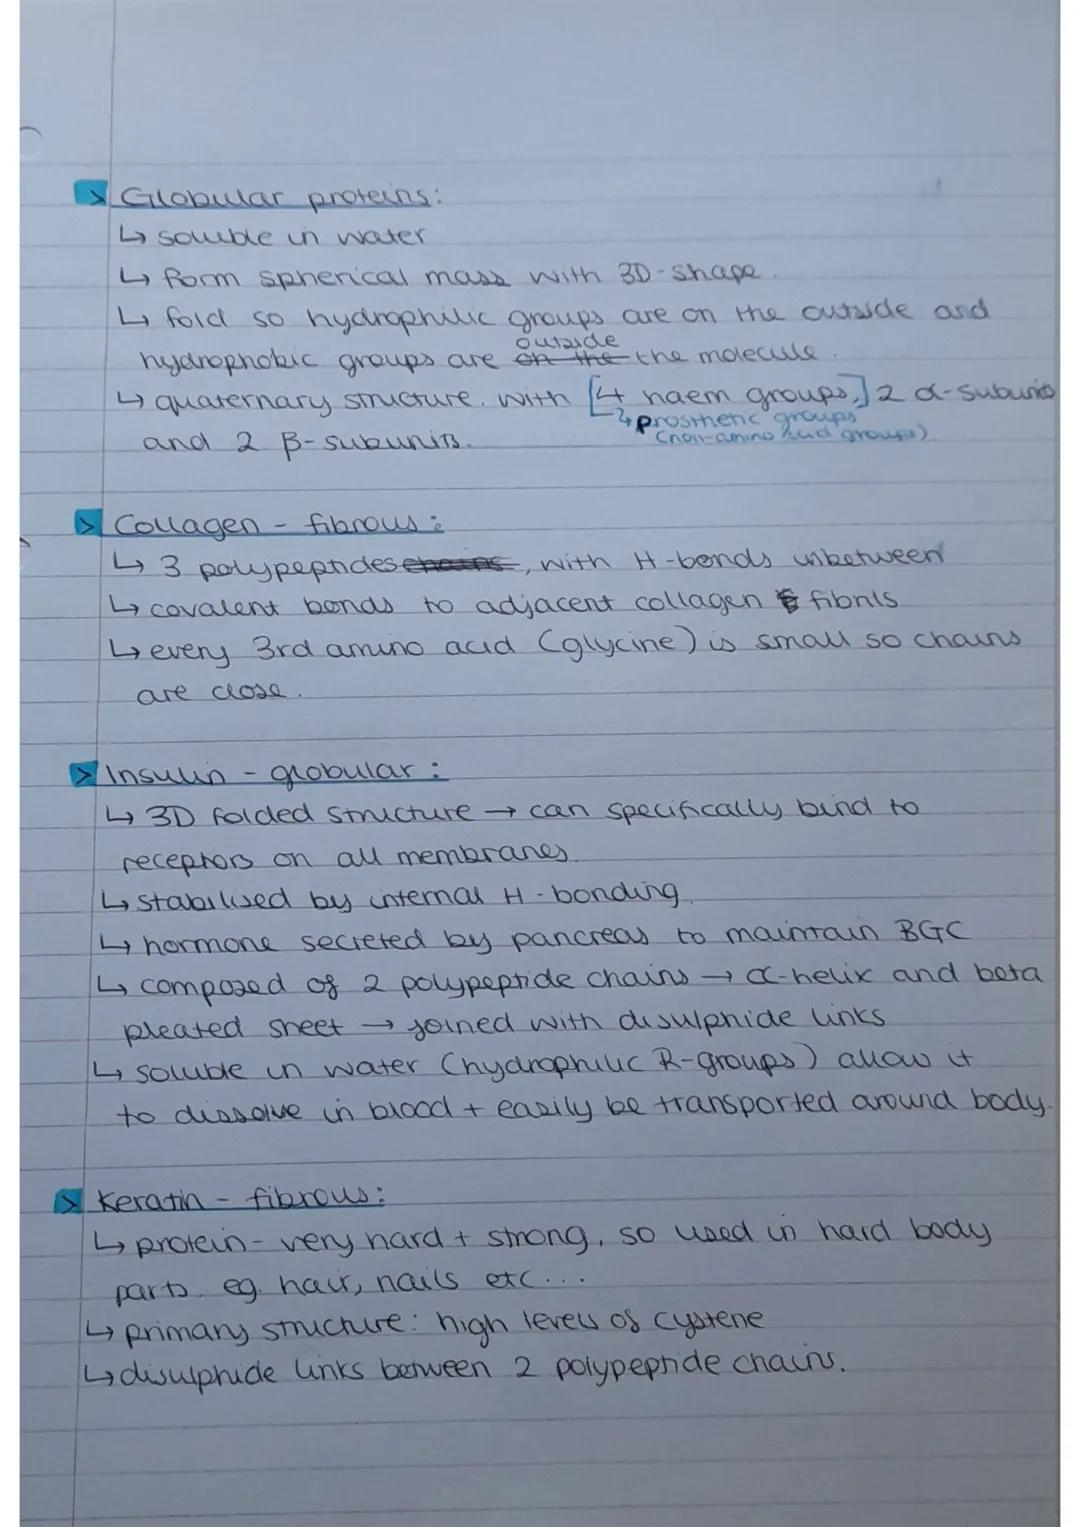 > Globular proteins:
↳ soluble in water
↳ form spherical mass with 3D-shape.
↳ fold so hydrophilic groups are on the outside and
outside
hydrophobic groups are on the the molecule.
↳ quaternary structure. with [4 haem groups,] 2 α-subunits
↳ prosthetic groups
and 2 β-subunits.
(non-amino acid groups)
> Collagen - fibrous:
↳ 3 polypeptides chains, with H-bonds inbetween
↳ covalent bonds to adjacent collagen fibrils
↳ every 3rd amino acid (glycine) is small so chains
are close.
> Insulin - globular:
↳ 3D folded structure → can specifically bind to
receptors on all membranes.
↳ stabilised by internal H-bonding.
↳ hormone secreted by pancreas to maintain BGC
↳ composed of 2 polypeptide chains → α-helix and beta
pleated sheet → joined with disulphide links
↳ soluble in water (hydrophilic R-groups) allow it
to dissolve in blood + easily be transported around body.
> Keratin - fibrous:
↳ protein - very hard + strong, so used in hard body
parts. eg. hair, nails etc...
↳ primary structure: high levels of cystene
↳ disulphide links between 2 polypeptide chains.